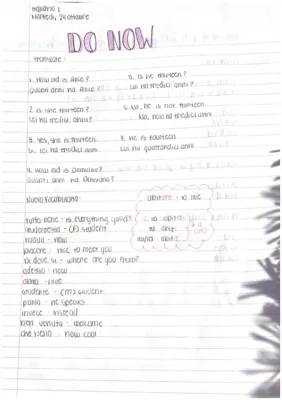 Italiano 1
DO NOW
Translate:
1. How old is Alice?
Quanti anni ha Alice?
2. Is he thirteen?
Lei ha tredici anni?
3. Yes, she is thirteen.
Si, lei ha tredici anni.
4. How old is
Quanti anni ha
5. Is he thirteen?
Lui ha tredici anni?
6. No, he is not thirteen.
No, non ha tredici anni
7. He is fourteen
Lui ha quattordici anni.
Nuovo Vocabolario
abitare - to live
io abito
tu abiti
lui/lei abita
tutto bene - is everything good?
studentessa - (F) student
nuovo - new
piacere - nice to meet you
di dove sei - where are you from?
adesso - now
abita - live
studente - (M) student
parla - he speaks
invece - instead
ben venuta - welcome
che bello - how cool